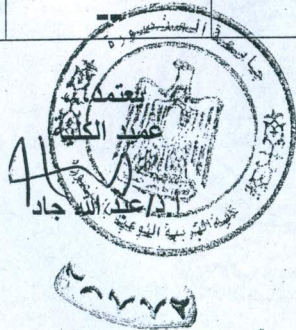 --
جامعة المنصورة
يعتمد،،
عميد الكلية
ا.د/عبد الله جاد
كلية التربية النوعية